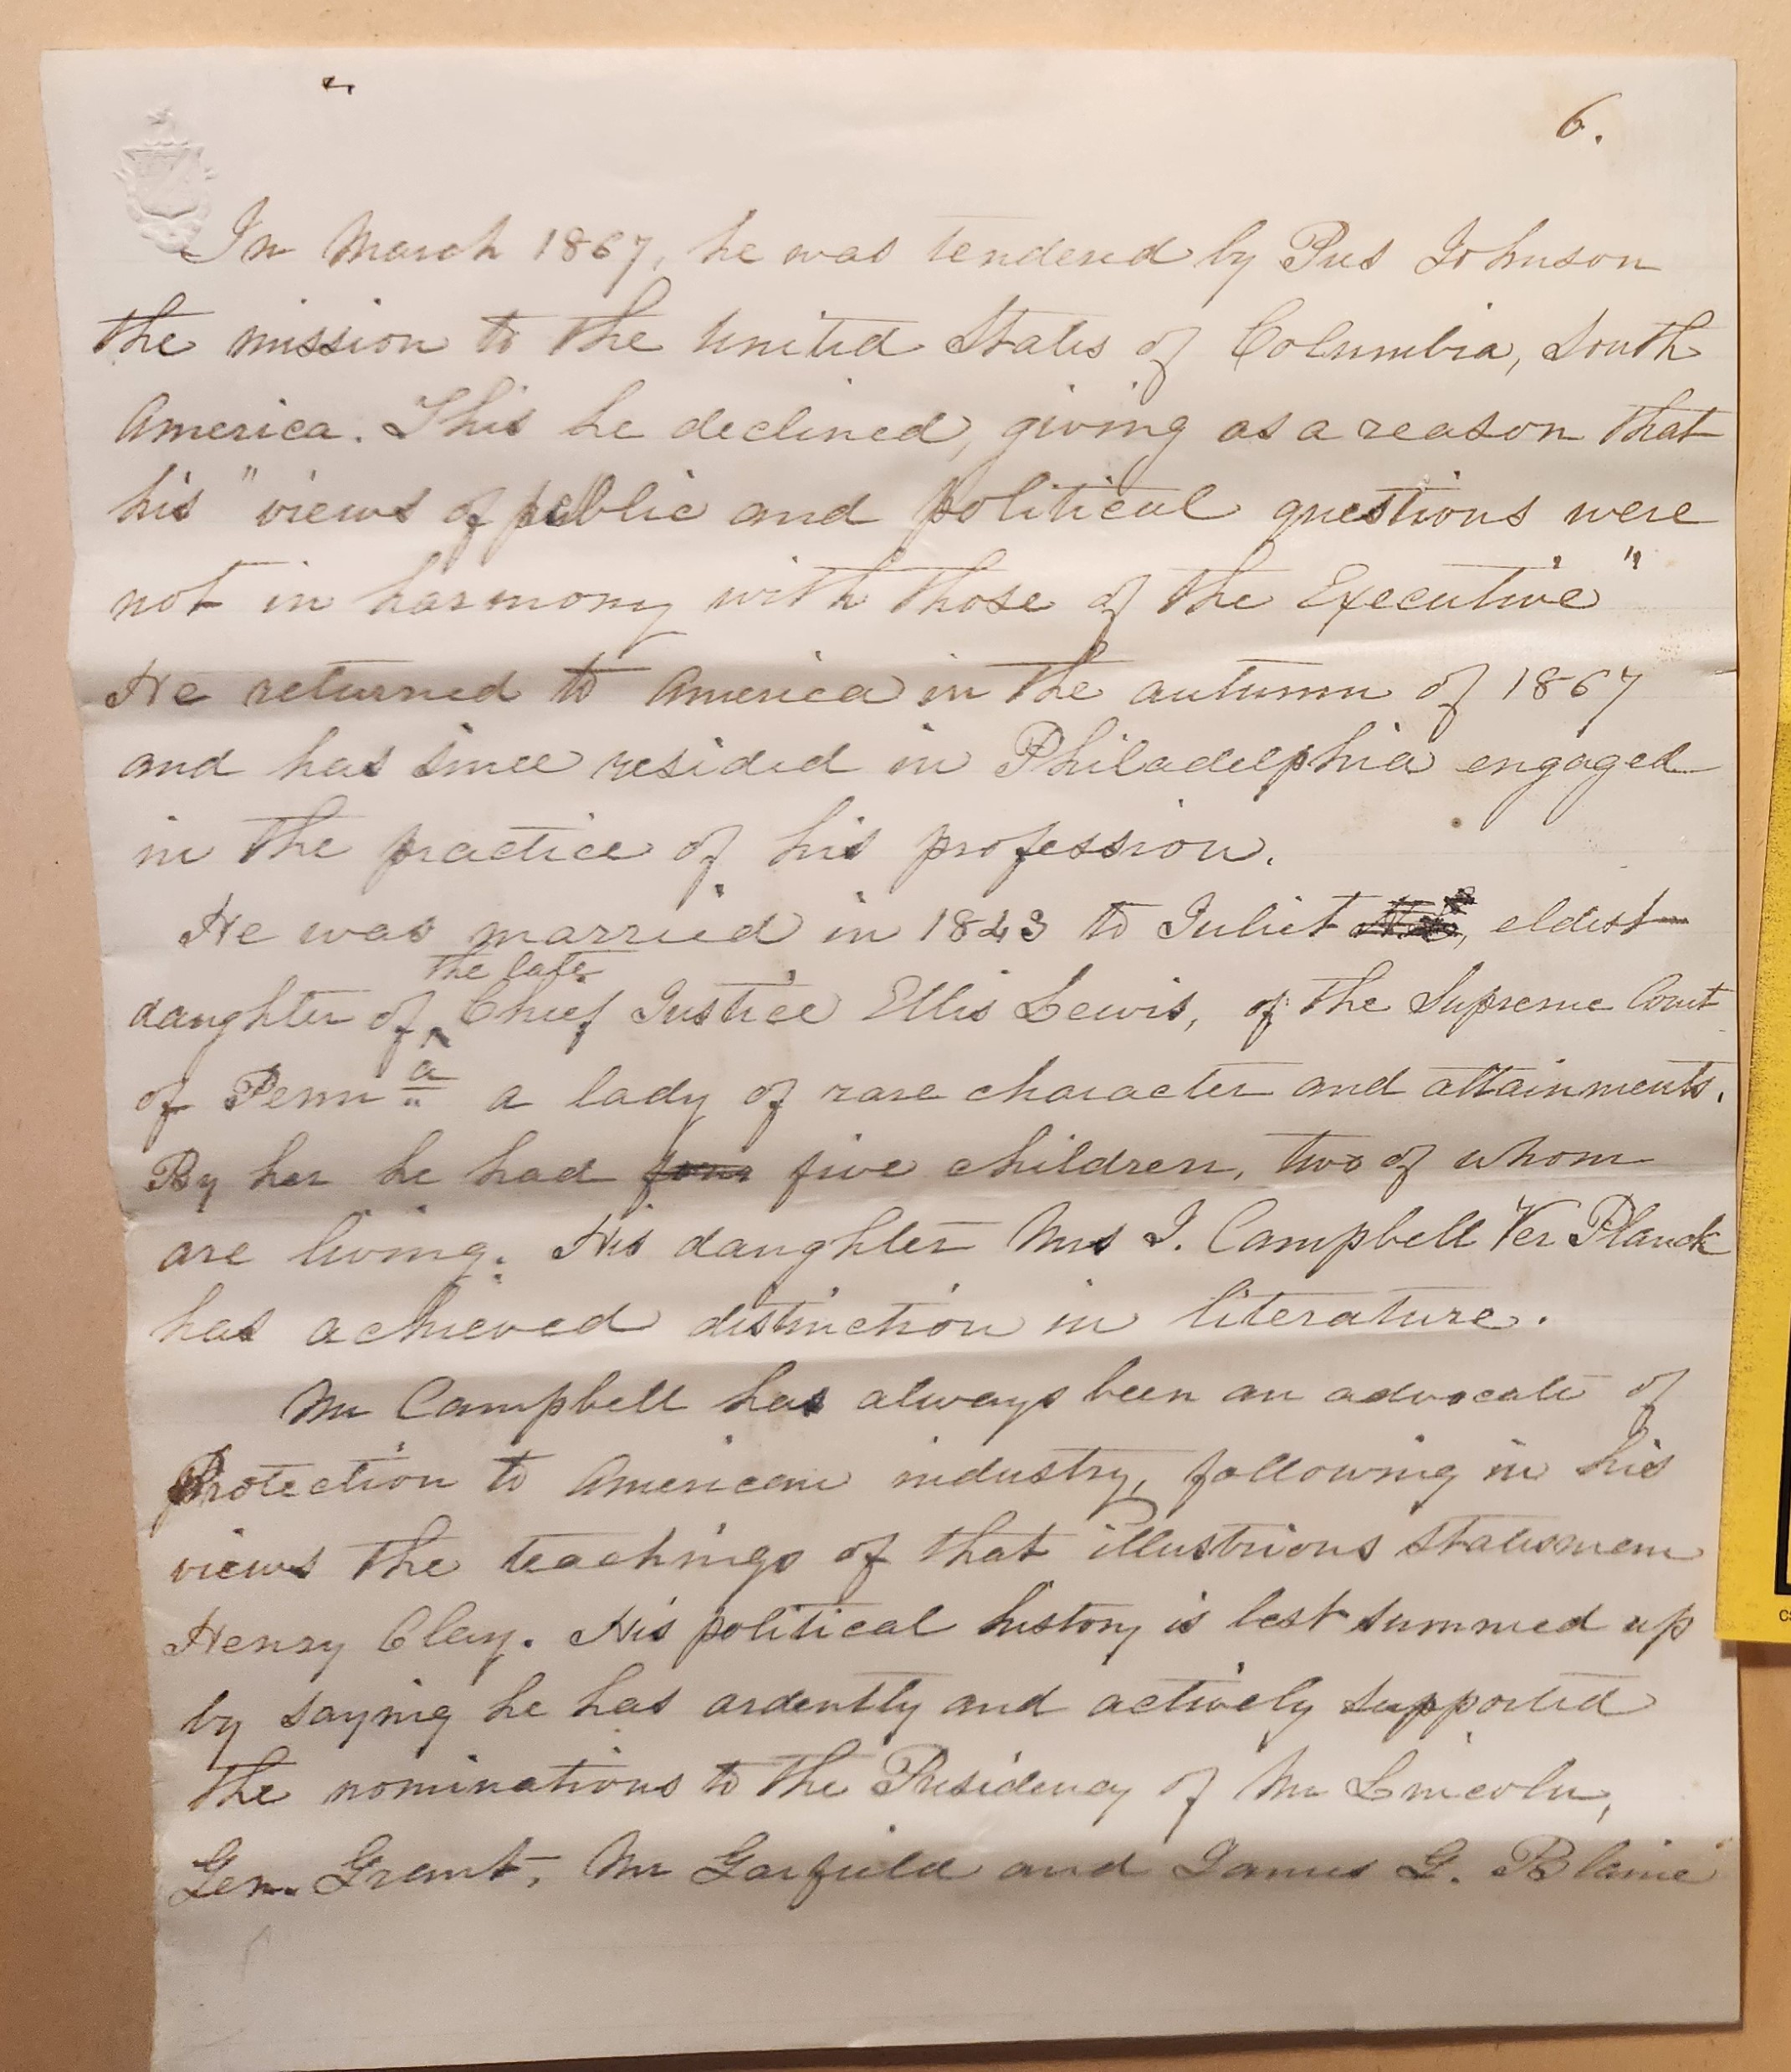 6.
In March 1867, he was tendered by Pres Johnson
the mission to the United States of Columbia, South
America. This he declined, giving as a reason that
his "views of public and political questions were
not in harmony with those of the Executive"
He returned to America in the autumn of 1867
and has since resided in Philadelphia engaged
in the practice of his profession.
He was married in 1843 to Juliet , eldest
the late
daughter of Chief Justice Ellis Lewis, of the Supreme Court
of Penna a lady of rare character and attainments.
By her he had four five children, two of whom
are living. His daughter Mrs J. Campbell Ver Planck
has achieved distinction in literature.
Mr Campbell has always been an advocate of
Protection to American industry, following in his
views the teachings of that illustrious statesman
Henry Clay. His political history is best summed up
by saying he has ardently and actively supported
the nominations to the Presidency of Mr Lincoln,
Gen. Grant, Mr Garfield and James G. Blaine